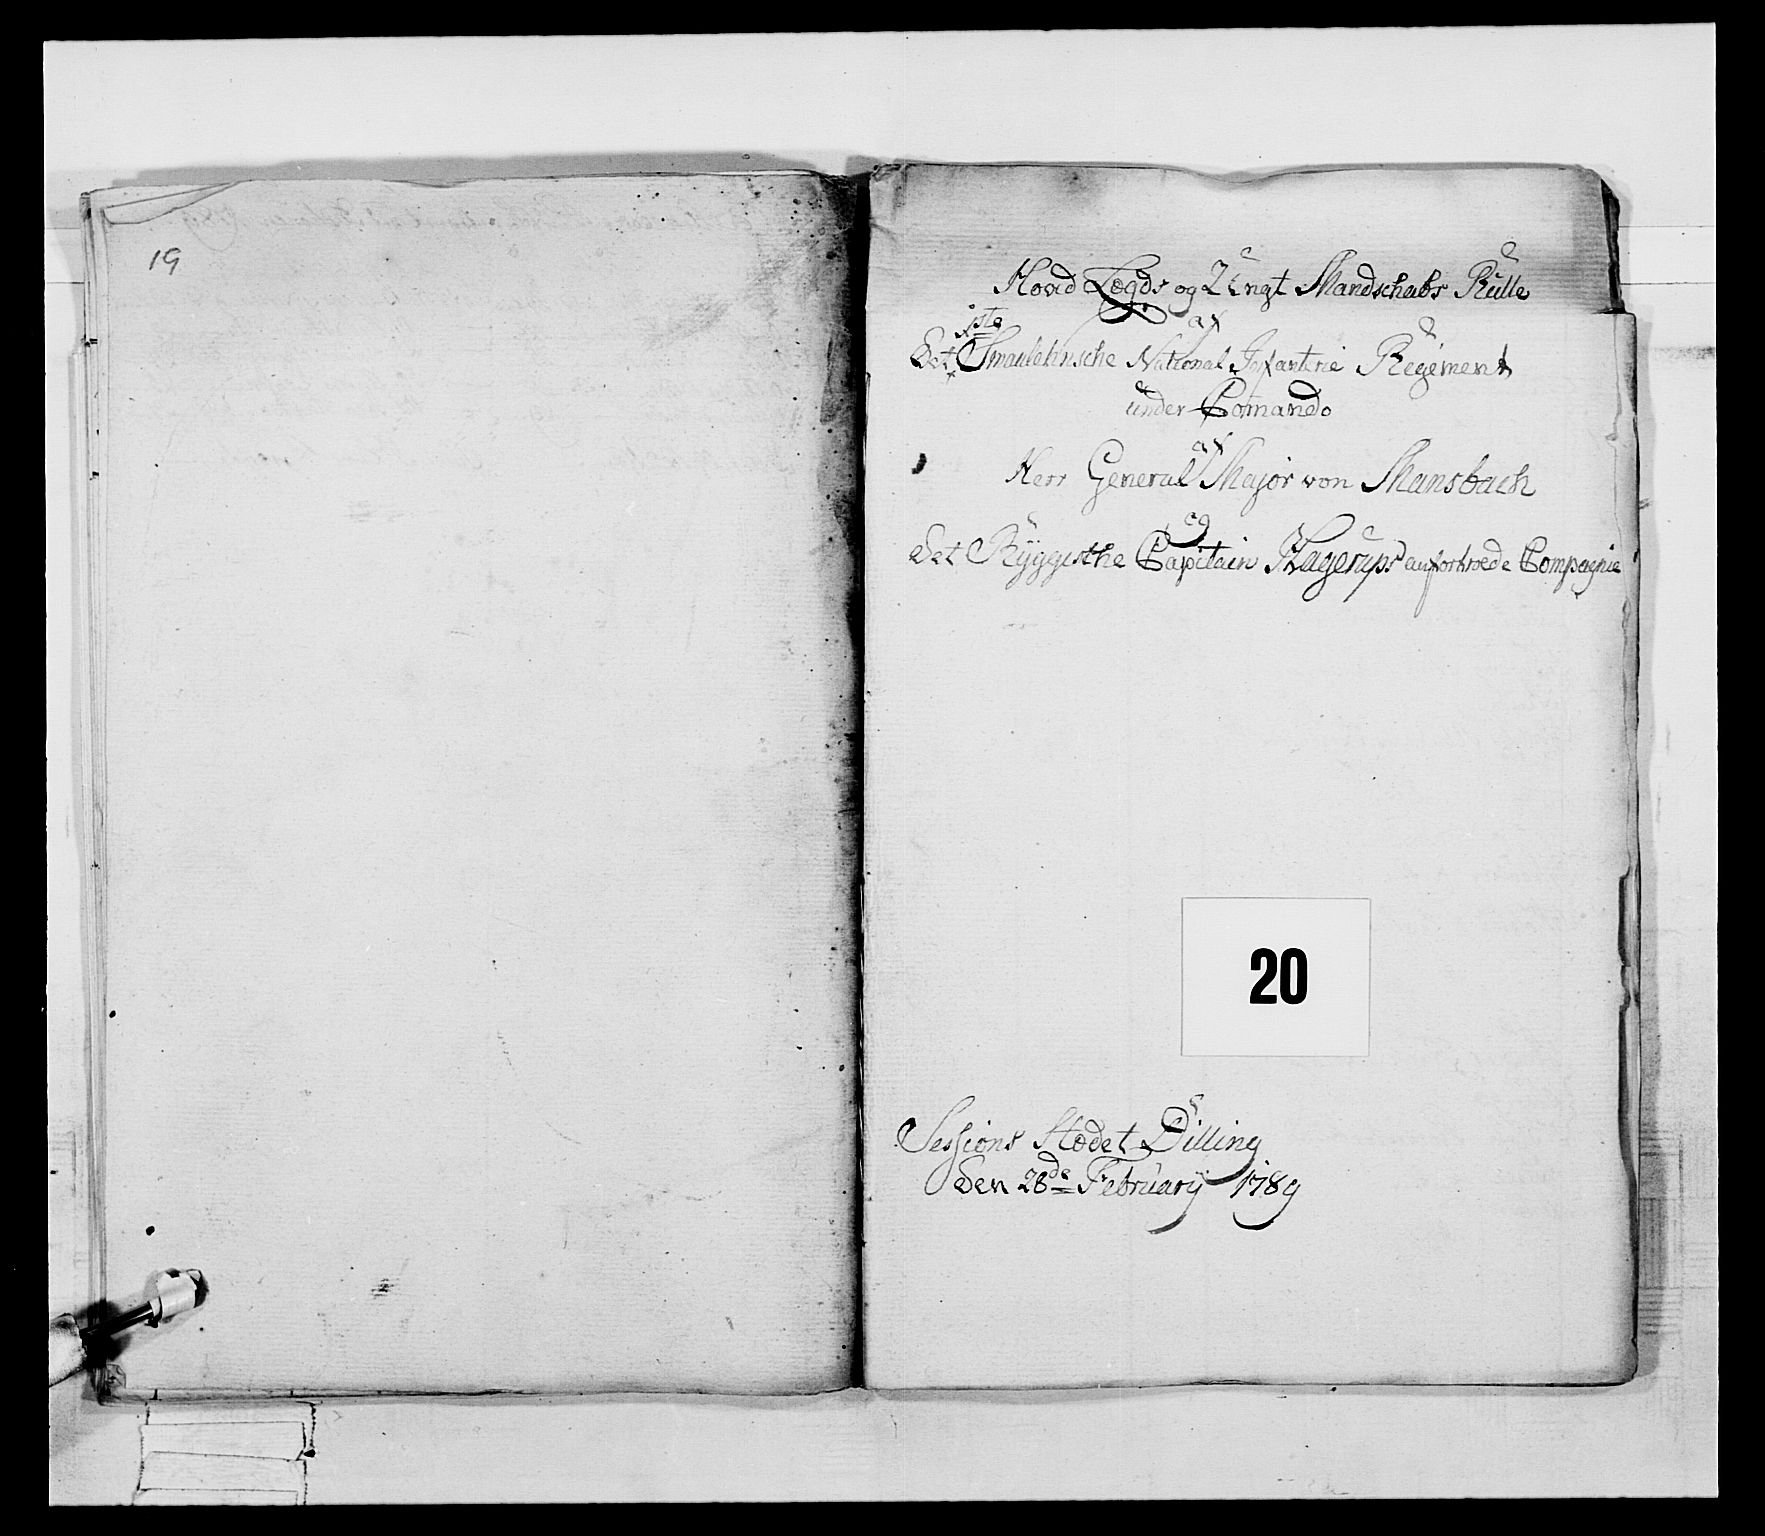 19
Hovid Lægds og Ungt Mandschabs Rulle
af
Det 1ste Smaalehnsche National Infanterie Regiment
under Comando
af
Herr General Major von Mansbach
og
Det Ryggesche Capitain Hagerups anfortroede Compagnie
20
Sessions Stædet Dilling
Den 28de February 1789